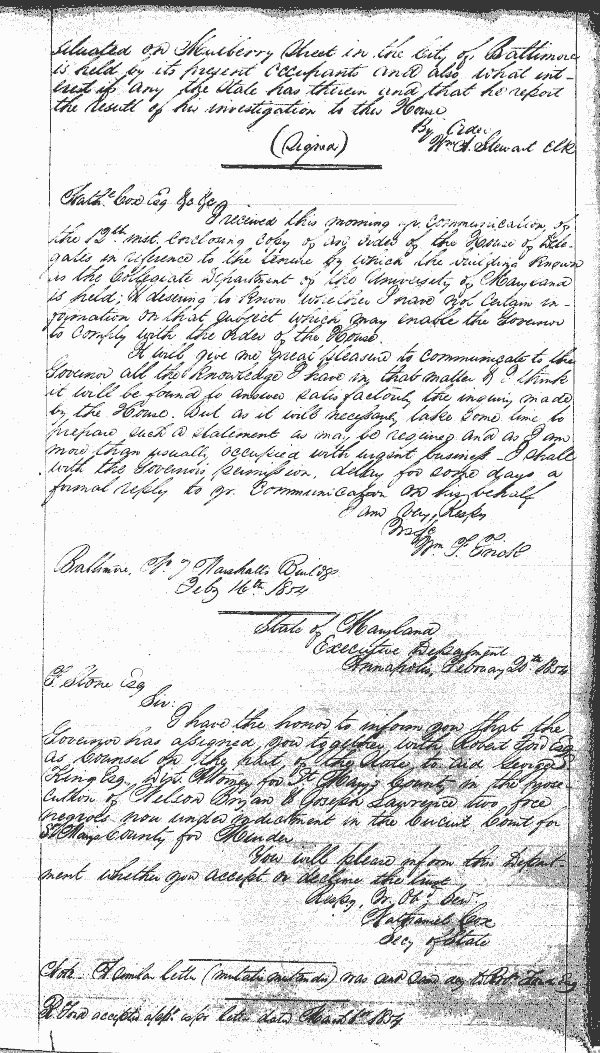 situated on Mulberry Street in the City of Baltimore
is held by its present occupants and also what int-
erest if any the State has therein and that he report
the result of his investigation to this House
By Order
(Signed) Wm H. Stewart Clk
Nathl Cox Esq &c &c
I received this morning yr. communication, of
the 12th inst. enclosing copy of an order of the House of Dele-
gates in reference to the tenure by which the building known
as the Collegiate Department of the University of Maryland
is held; & desiring to know whether I have not certain in-
formation on that subject which may enable the Governor
to comply with the order of the House.
It will give me great pleasure to communicate to the
Governor all the knowledge I have in that matter & I think
it will be found to answer satisfactorily the inquiry made
by the House. But as it will necessarily take some time to
prepare such a statement as may be required and as I am
more than usually occupied with urgent business - I shall
with the Governor's permission, delay for some days a
formal reply to yr. Communication on his behalf
I am Very Respy
Wm F.
Baltimore, No 7 Marshall's Buildgs
Feby 16th 1854
State of Maryland
Executive Department
Annapolis, February 20th 1854
F Stone Esq
Sir:
I have the honor to inform you that the
Governor has assigned you together with Robert Ford Esq
as Counsel on the part of the State, to aid George
King Esq., Dist. Attorney for St Mary's County in the prose-
cution of Nelson Bryan & Joseph Lawrence two free
negroes now under indictment in the Circuit Court for
St Marys County for Murder
You will please inform this Depart-
ment whether you accept or decline the trust
Respy, Yr. Obt. Servt
Nathaniel Cox
Secy of State
Note. A similar letter (mutatis mutandis) was sent same day to Robt. Ford Esq
R. Ford accepted appt. as pr letter dated March 1st 1854